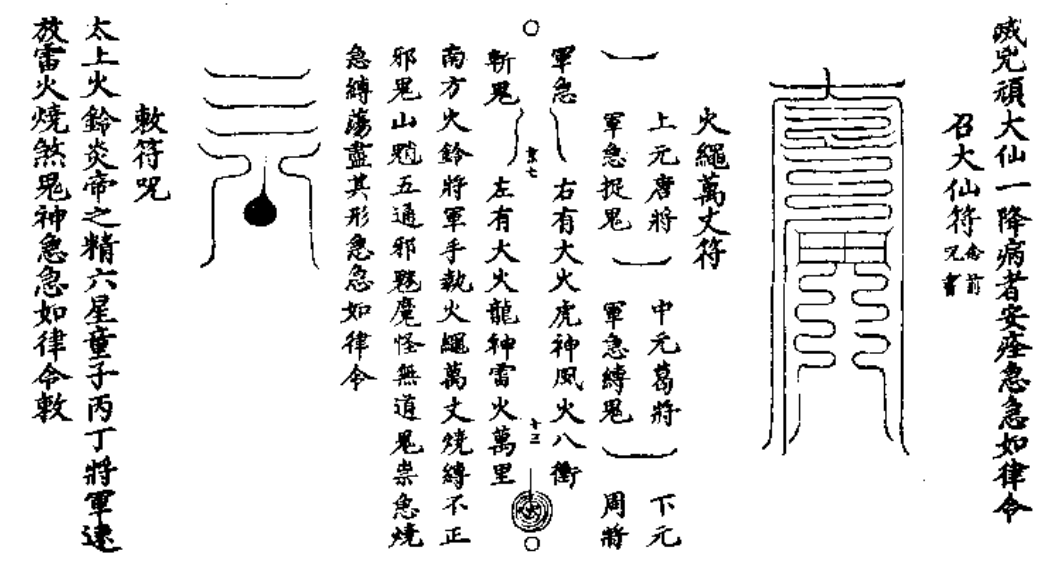 滅兇頑大仙一降病者安痊急急如律令
召大仙符念前咒書
火繩萬丈符
上元唐將 中元葛將 下元
軍急捉鬼 軍急縛鬼 周將
軍急 右有大火虎神風火八衝
斬鬼 左有大火龍神雷火萬里
南方火鈴將軍手執火繩萬丈燒縛不正
邪鬼山魈五通邪魅魔怪無道鬼祟急燒
急縛蕩盡其形急急如律令
敕符咒
太上火鈴炎帝之精六星童子丙丁將軍速
放雷火燒煞鬼神急急如律令敕